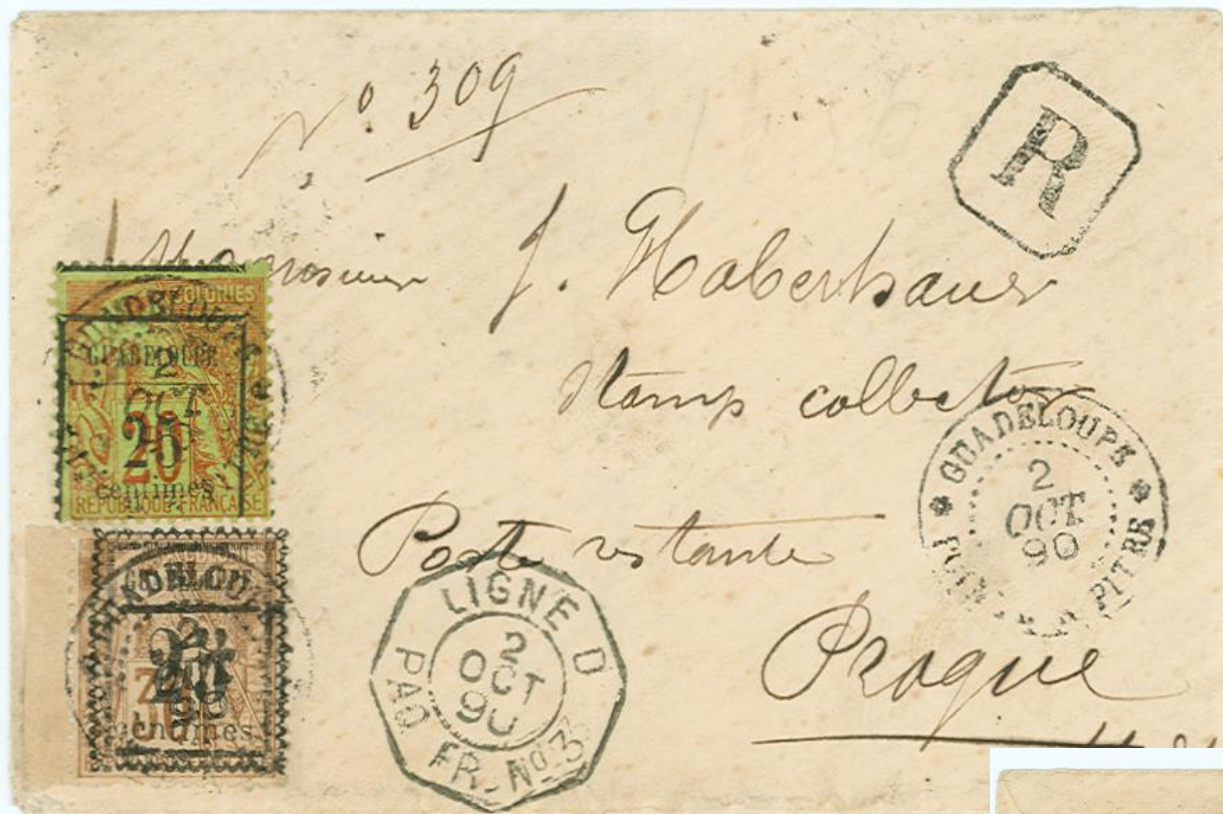 No. 309
R
Monsieur J. Haberhauer
Stamp collector
Poste restante
Prague
COLONIES
GUADELOUPE
2
OCT
20
centimes
REPUBLIQUE FRANÇAISE
GUADELOUPE
2
90
centimes
LIGNE D
2
OCT
90
PAQ. FR. No 3
GUADELOUPE
2
OCT
90
POINTE A PITRE